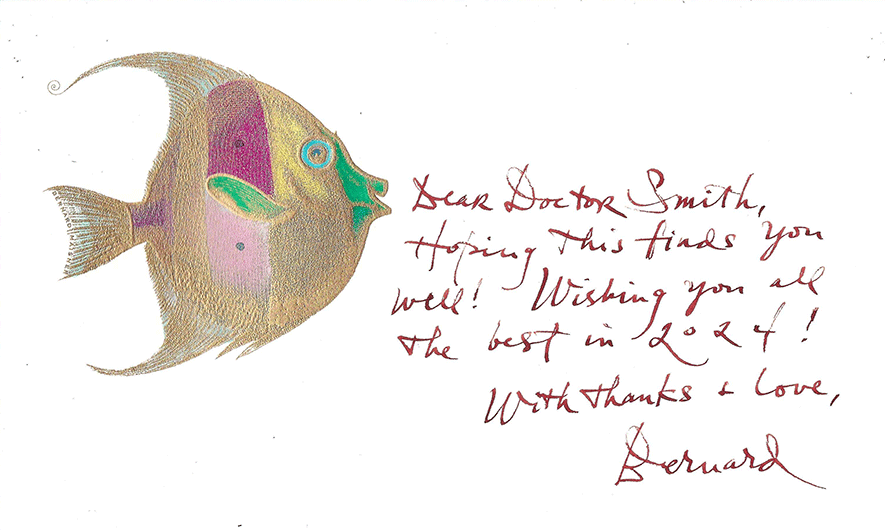 Dear Doctor Smith,
Hoping This finds you
well! Wishing you all
the best in 2024!
With thanks & Love,
Bernard